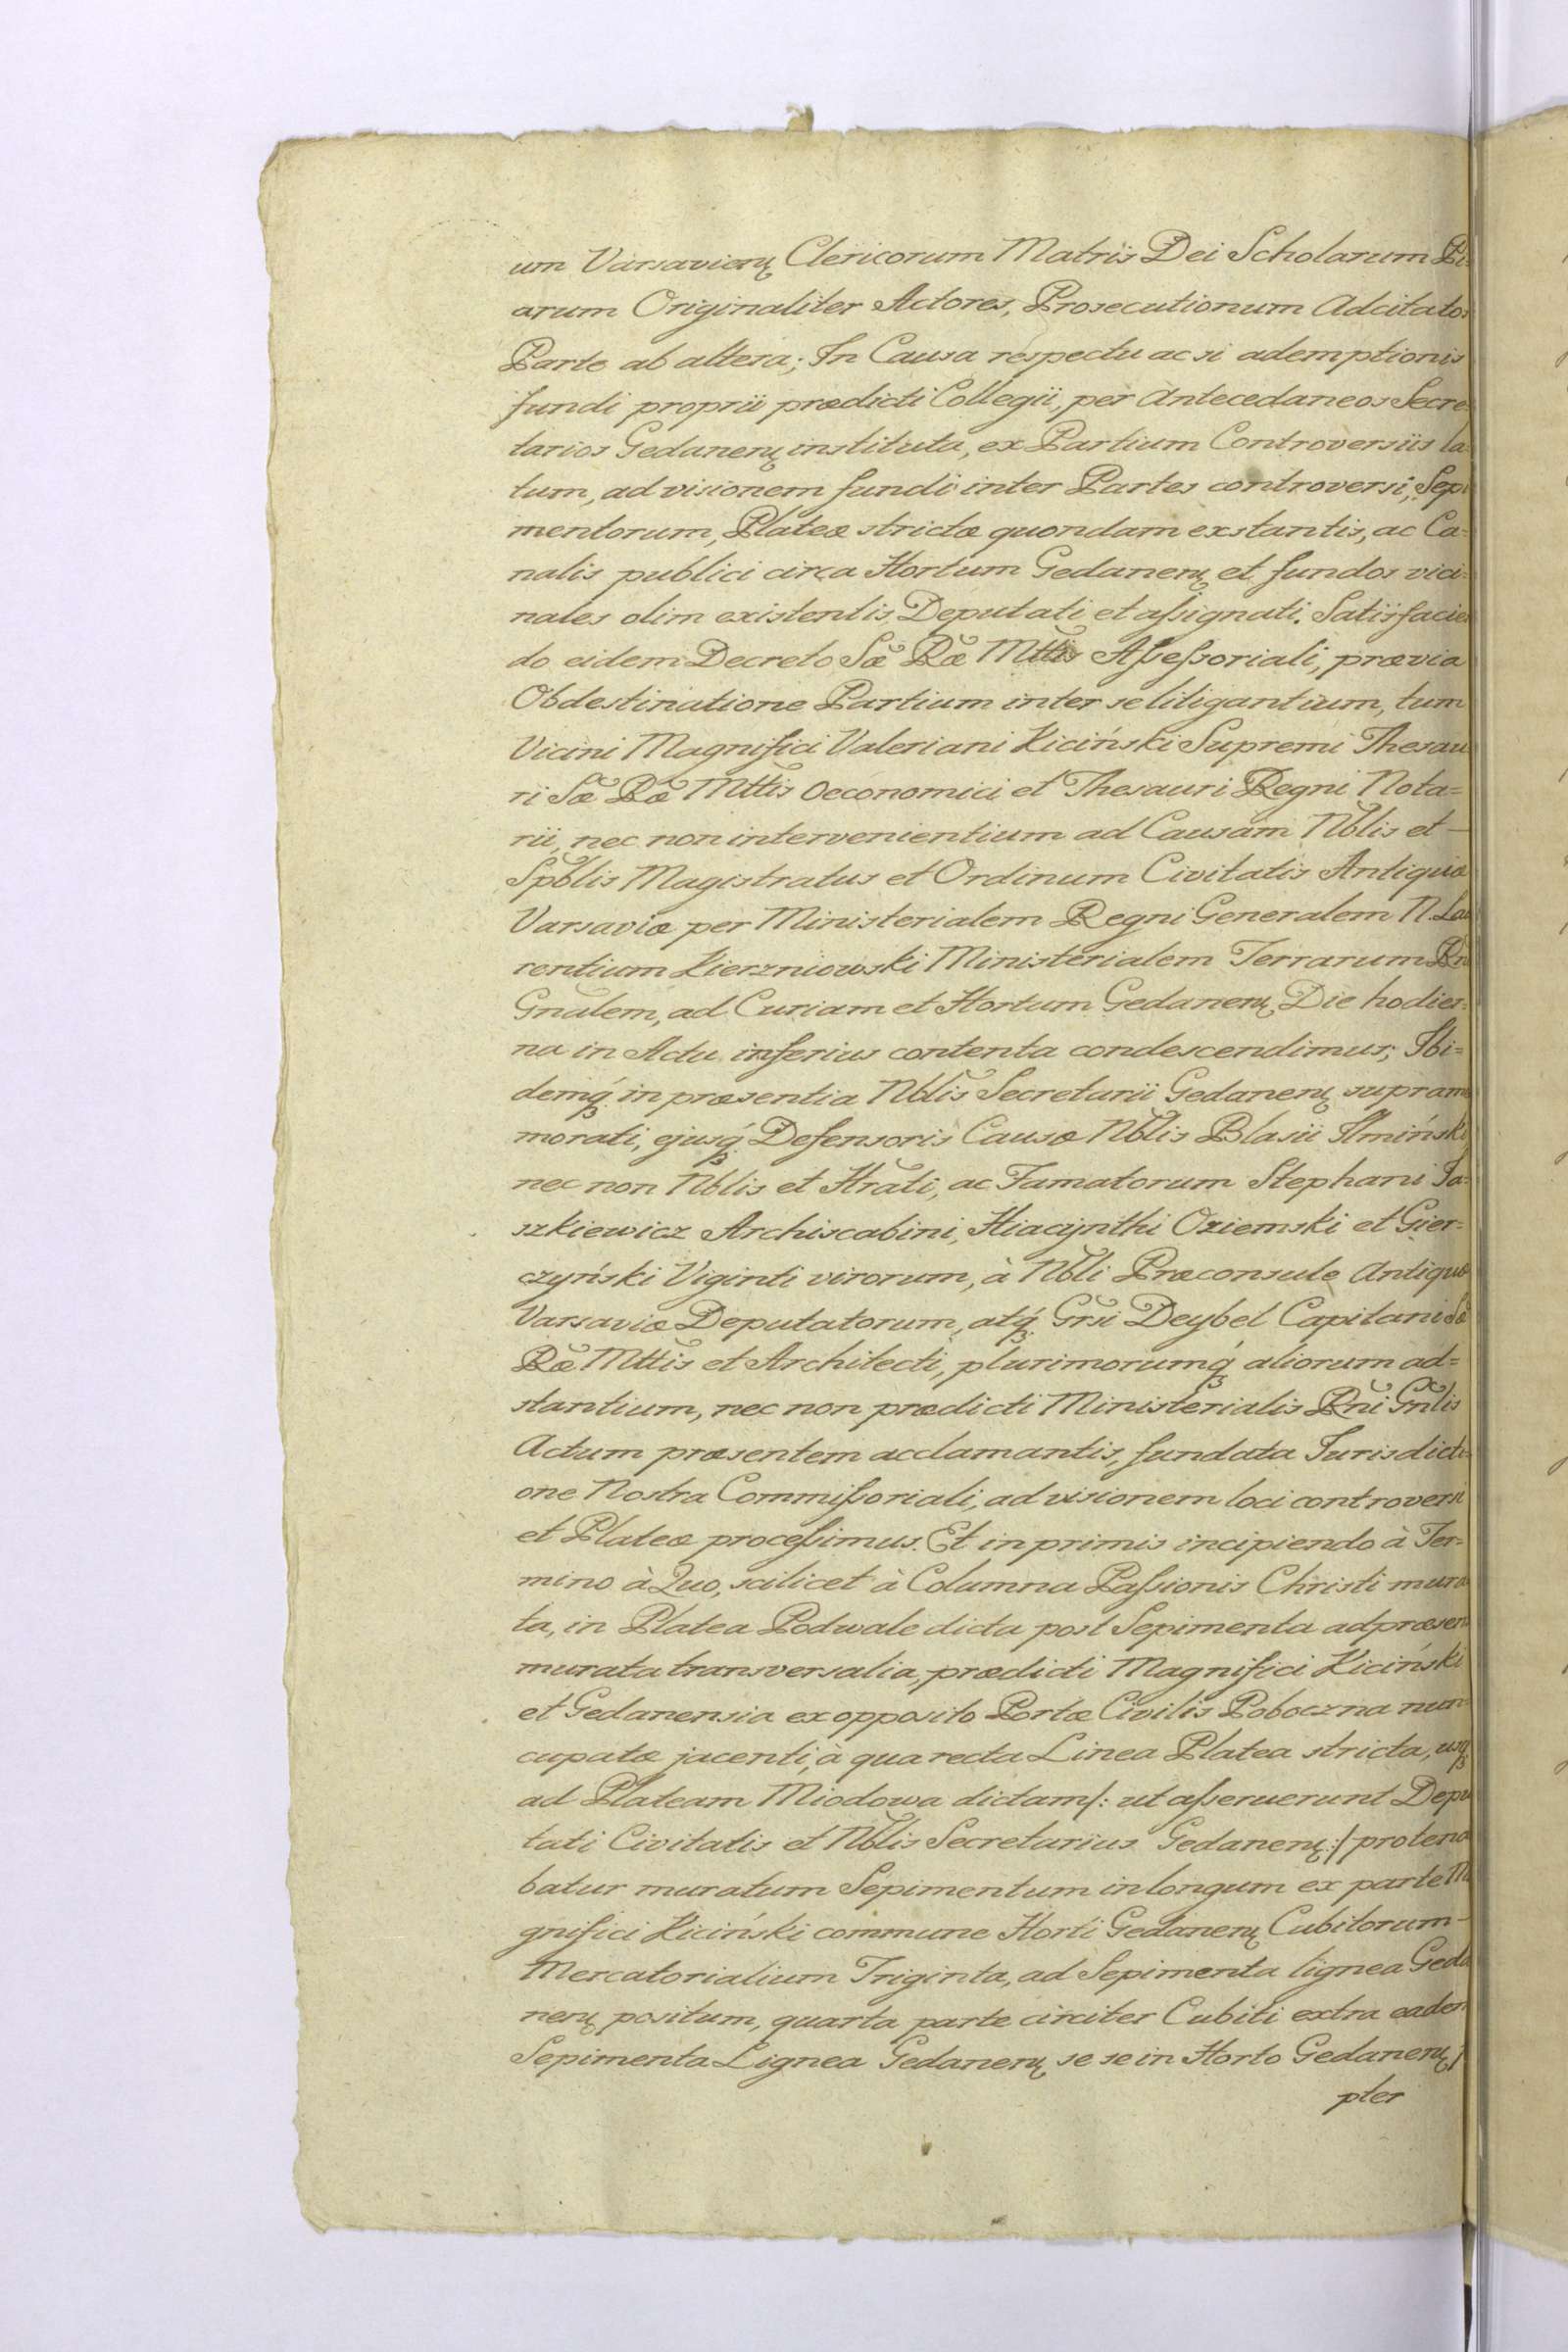 um Varsavien̄ Clericorum Matris Dei Scholarum Pi
arum Originaliter Actores, Prosecutionum Adcitatos
Parte ab altera; In Causa respectu ac si ademptionis
fundi proprii prædicti Collegii, per Antecedaneos Secre
tarios Gedanen̄ instituta, ex Partium Controversiis la
tum, ad visionem fundi inter Partes controversi, Sepi
mentorum, Plateæ strictæ quondam exstantis, ac Ca=
nalis publici circa Hortum Gedanen̄ et fundos vici=
nales olim existentis, Deputati et assignati. Satisfacien
do eidem Decreto Sæ Ræ Mttis Assessoriali, prævia
Obdestinatione Partium inter se litigantium, tum
Vicini Magnifici Valeriani Kiciński Supremi Thesau
ri Sæ Ræ Mttis Oeconomici et Thesauri Regni Nota=
rii, nec non intervenientium ad Causam Nblis et —
Spblis Magistratus et Ordinum Civitatis Antiquæ
Varsaviæ per Ministerialem Regni Generalem N. Lau
rentium Kierzniowski Ministerialem Terrarum Rni
Gnalem, ad Curiam et Hortum Gedanen̄ Die hodier=
na in Actu inferius contenta condescendimus; Ibi=
demq́ in præsentia Nblis Secretarii Gedanen̄ suprame
morati, ejusq́ Defensoris Causæ Nblis Blasii Ilmiński
nec non Nblis et Hrati, ac Famatorum Stephani Ja=
szkiewicz Archiscabini, Hiacynthi Oziemski et Gier=
czyński Viginti virorum, à Nbli Præconsule Antiquæ
Varsaviæ Deputatorum, atq́ Grsi Deybel Capitani Sæ
Ræ Mttis et Architecti, plurimorumq́ aliorum ad=
stantium, nec non prædicti Ministerialis Rni Gnlis
Actum præsentem acclamantis, fundata Jurisdicti
one Nostra Commissoriali, ad visionem loci controversi
et Plateæ processimus. Et in primis incipiendo à Ter=
mino à Quo, scilicet à Columna Passionis Christi mura
ta, in Platea Podwale dicta post Sepimenta ad præsen
murata transversalia, prædicti Magnifici Kiciński
et Gedanensia ex opposito Portæ Civilis Poboczna nun
cupatæ jacenti, à qua recta Linea Platea stricta, usq
ad Plateam Miodowa dictam /: ut asseruerunt Depu
tati Civitatis et Nblis Secretarius Gedanen̄ :/ protende
batur muratum Sepimentum in longum ex parte Ma
gnifici Kiciński commune Horti Gedanen̄ Cubitorum —
Mercatorialium Triginta, ad Sepimenta lignea Geda
nen̄ positum, quarta parte circiter Cubiti extra eadem
Sepimenta Lignea Gedanen̄ se se in Horto Gedanen̄ /
pter